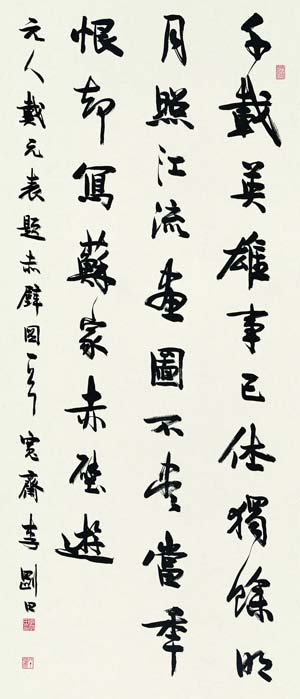 千載英雄事已休獨餘明
月照江流畫圖不盡當年
恨却寫蘇家赤壁遊
元人戴元表題赤壁圖 寬齋李剛田